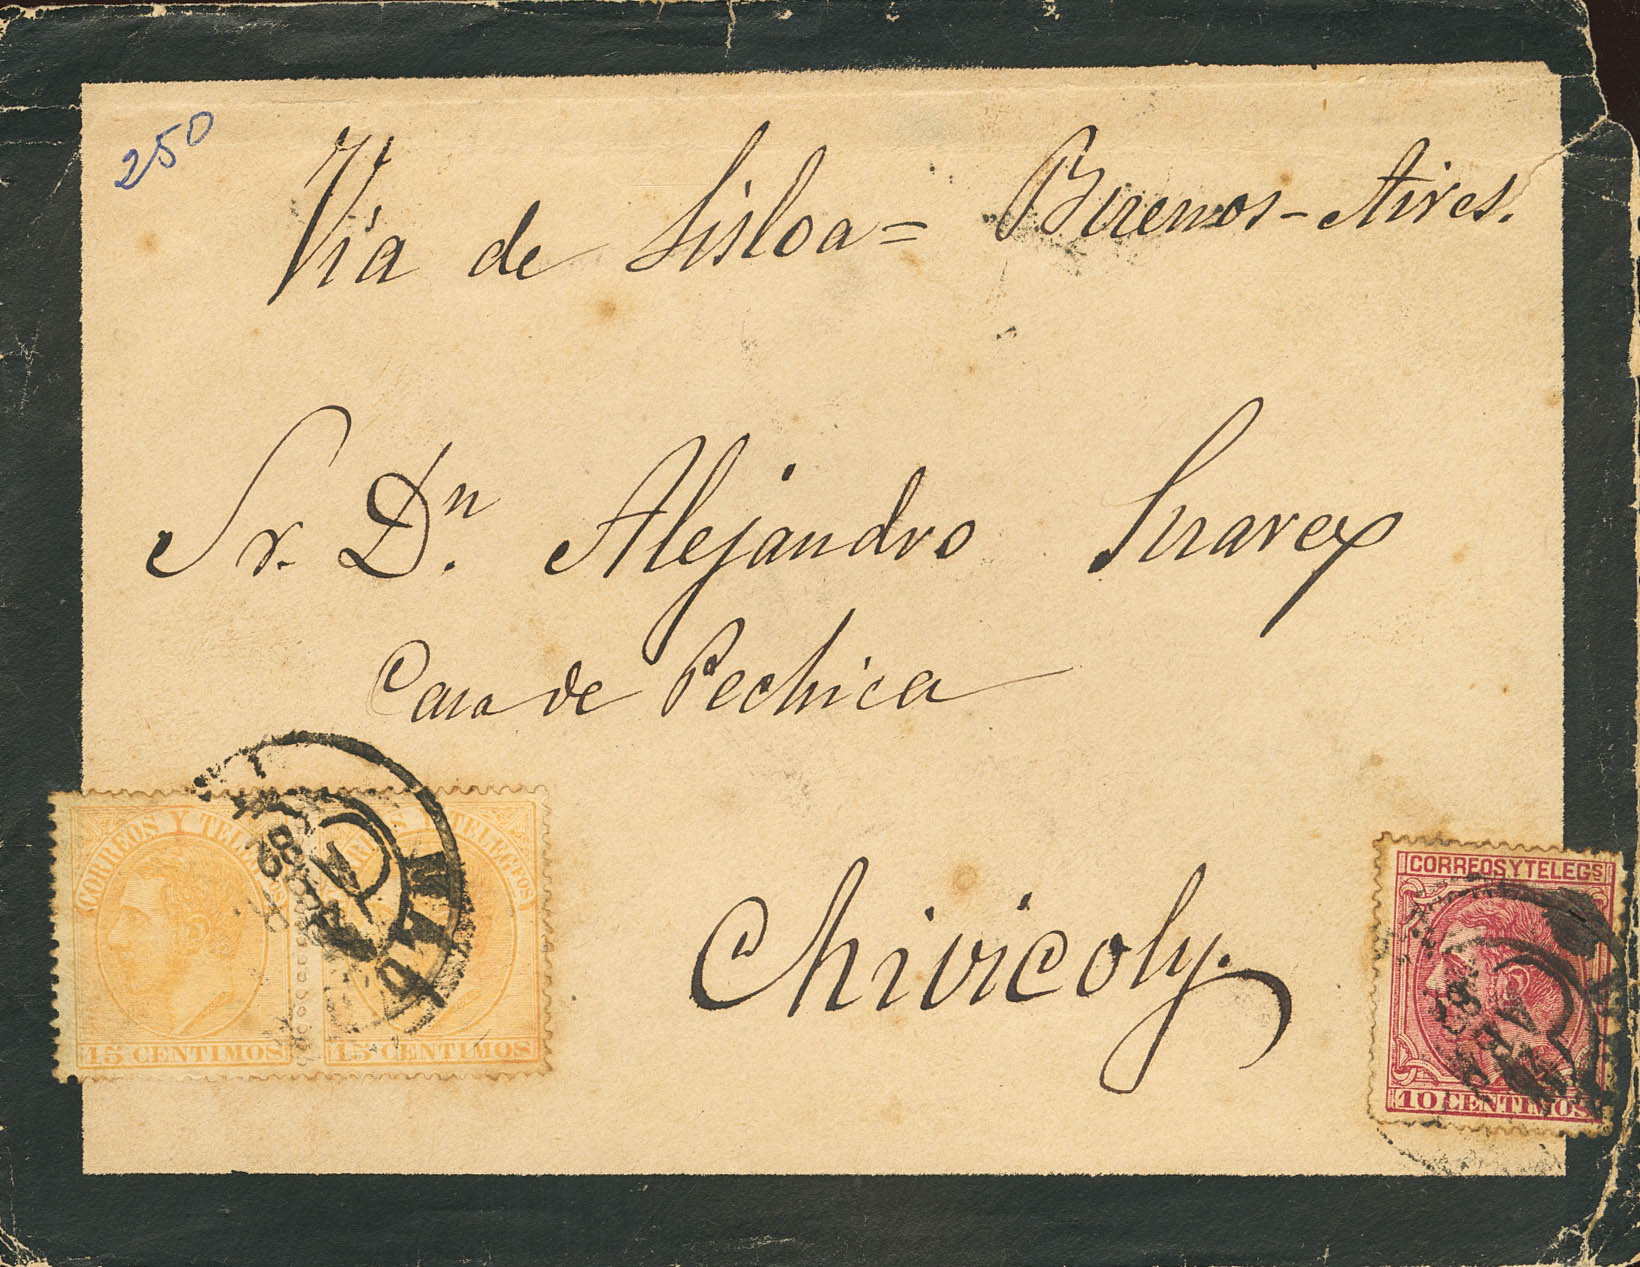 250
Via de Lisboa = Buenos-Aires.
Sr. Dn. Alejandro Suarez
Casa de Pechica
Chivicoly.
CORREOS Y TELEGS
15 CENTIMOS
15 CENTIMOS
CORREOS Y TELEGS
10 CENTIMOS